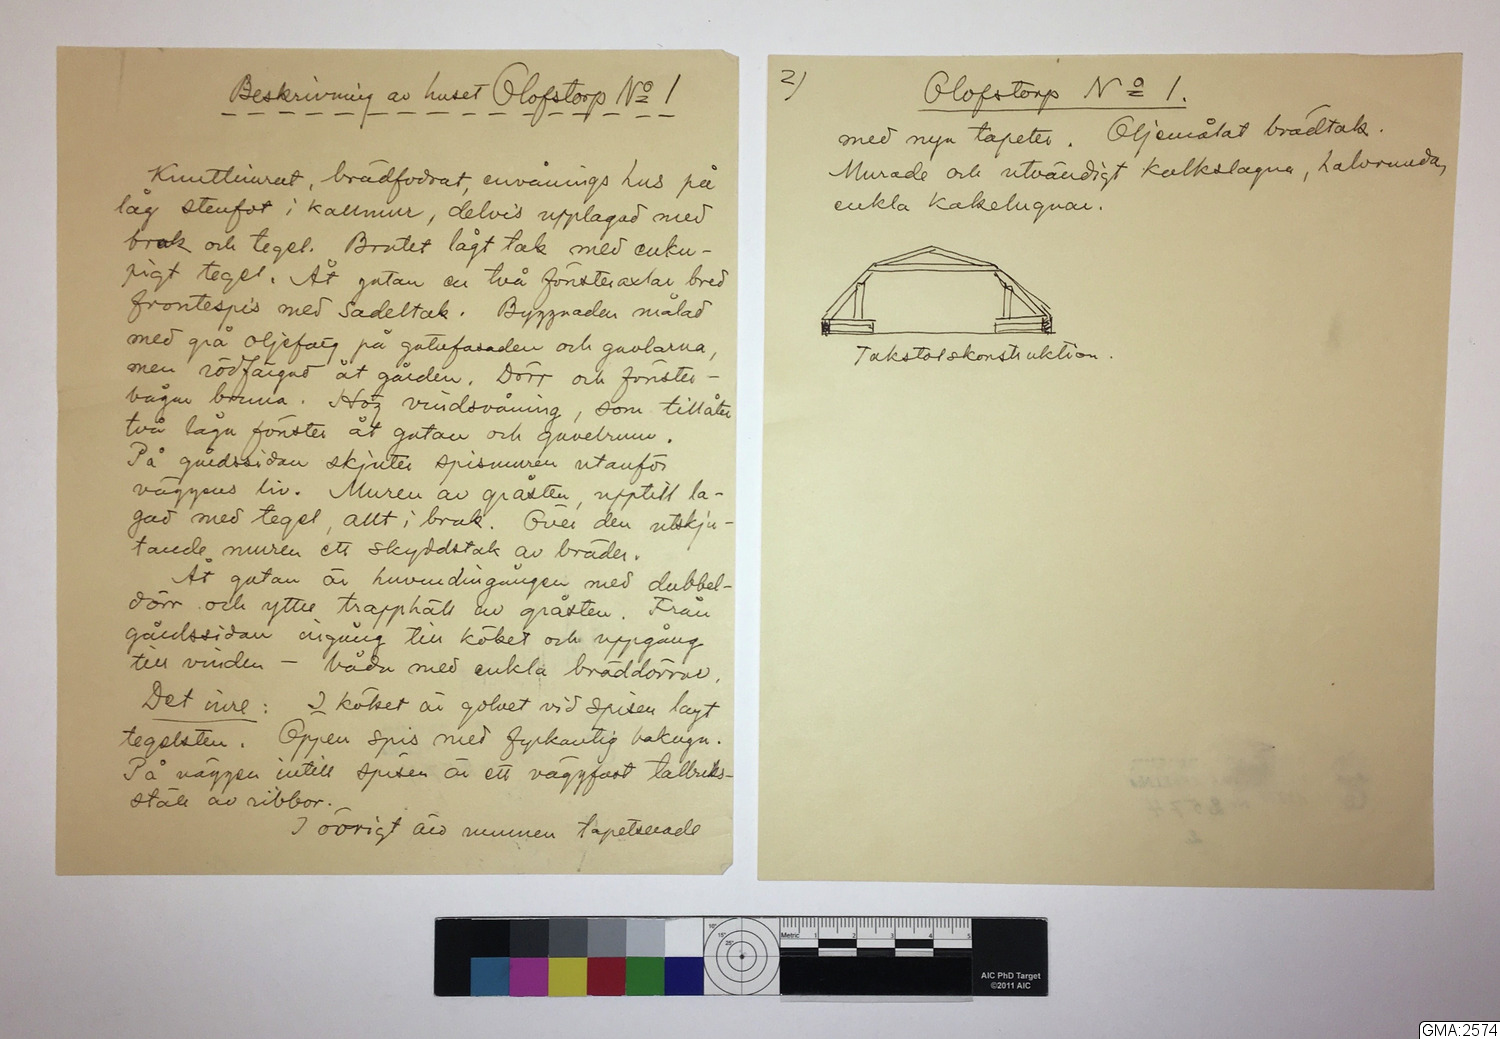 Beskrivning av huset Olofstorp No 1
Knuttimrat, brädfodrat, envånings hus på
låg stenfot i kallmur, delvis upplagad med
bruk och tegel. Brutet lågt tak med enku-
pigt tegel. Åt gatan en två fönsteraxlar bred
frontespis med sadeltak. Byggnaden målad
med grå oljefärg på gatufasaden och gavlarna,
men rödfärgad åt gården. Dörr och fönster-
bågar bruna. Hög vindsvåning, som tillåter
två låga fönster åt gatan och gavelrum.
På gårdssidan skjuter spismuren utanför
väggens liv. Muren av gråsten, upptill la-
gad med tegel, allt i bruk. Över den utskju-
tande muren ett skyddstak av bräder.
Åt gatan är huvudingången med dubbel-
dörr och yttre trapphäll av gråsten. Från
gårdssidan ingång till köket och uppgång
till vinden – båda med enkla bräddörrar.
Det inre: I köket är golvet vid spisen lagt
tegelsten. Öppen spis med fyrkantig bakugn.
På väggen intill spisen är ett väggfast tallriks-
ställ av ribbor.
I övrigt äro rummen tapetserade
2)
Olofstorp No 1.
med nya tapeter. Oljemålat brädtak.
Murade och utvändigt kalkslagna, halvrunda,
enkla kakelugnar.
Takstolskonstruktion.
2574
2
Metric 1 2 3 4 5
10°
15°
25°
AIC PhD Target
©2011 AIC
GMA:2574